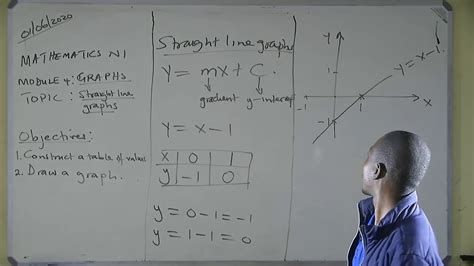 01/06/2020
MATHEMATICS N1
MODULE 4: GRAPHS
TOPIC : Straight line
graphs
Objectives:
1. Construct a table of values
2. Draw a graph.
Straight line graphs
y = mx + c.
gradient y-intercep
y = x - 1
x 0 1
y -1 0
y = 0 - 1 = -1
y = 1 - 1 = 0
y
y = x - 1
1
-1 1 x
-1